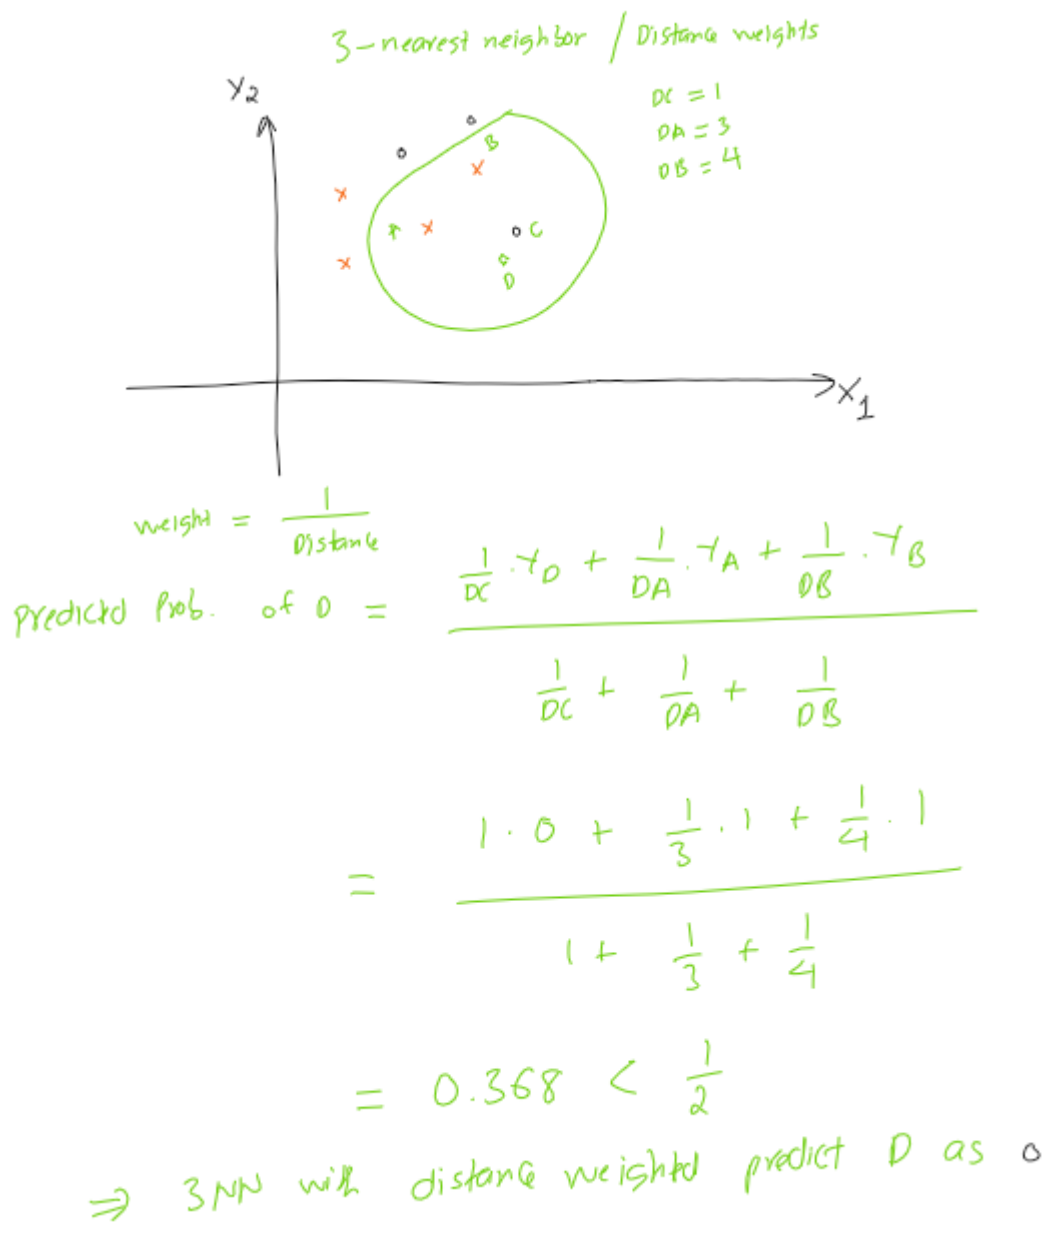 3-nearest neighbor / Distance weights
Y2
DC = 1
DA = 3
DB = 4
B
A
C
D
X1
weight = 1/Distance
Predicted Prob. of D = (1/DC . YD + 1/DA . YA + 1/DB . YB) / (1/DC + 1/DA + 1/DB)
= (1 . 0 + 1/3 . 1 + 1/4 . 1) / (1 + 1/3 + 1/4)
= 0.368 < 1/2
⇒ 3NN with distance weighted predict D as o